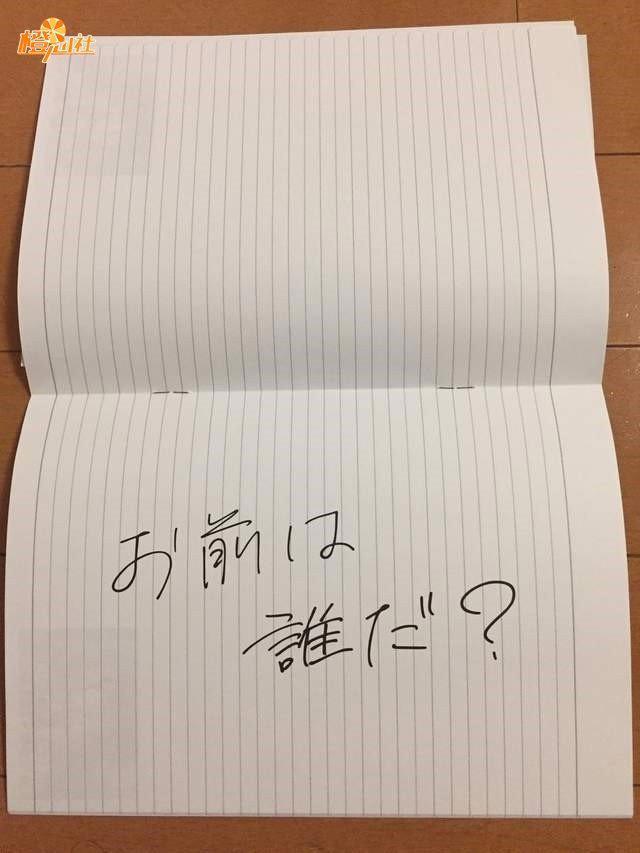 橙心社
お前は
誰だ？